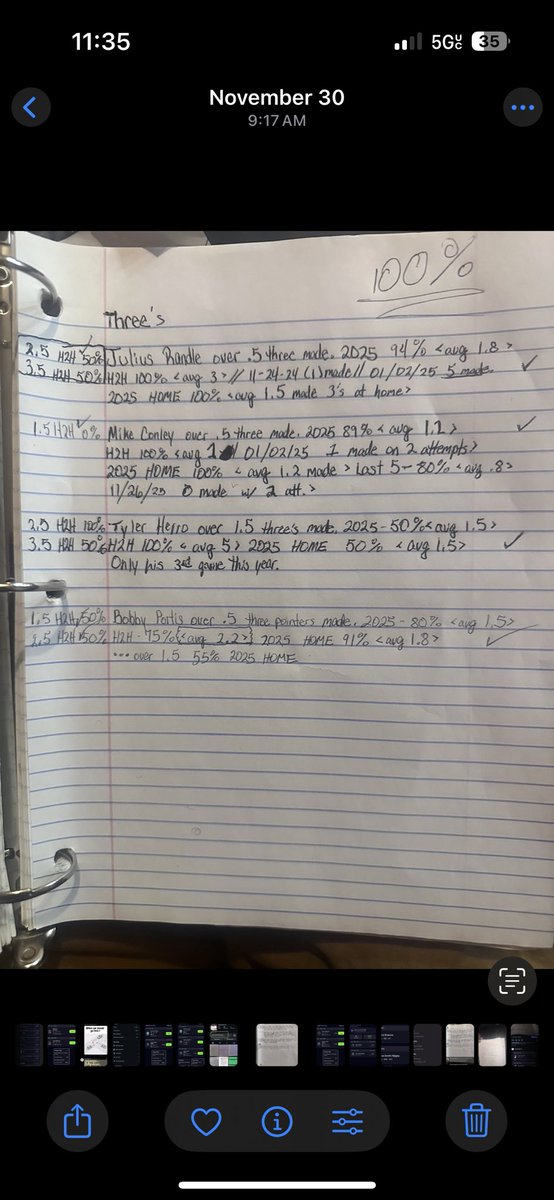 11:35
5GUC
35
November 30
9:17 AM
100%
Three's
2.5 H2H 50% Julius Randle over .5 three made. 2025 94% <avg 1.8>
3.5 H2H 50% H2H 100% <avg 3> // 11-24-24 (1) made // 01/02/25 5 made
2025 HOME 100% <avg 1.5 made 3's at home>
1.5 H2H 0% Mike Conley over .5 three made. 2025 89% <avg 1.1>
H2H 100% <avg 1 01/02/25 1 made on 2 attempts>
2025 HOME 100% < avg 1.2 made > Last 5 - 80% <avg .8>
11/26/25 0 made w/ 2 att.>
2.5 H2H 100% Tyler Herro over 1.5 three's made. 2025 - 50% <avg 1.5>
3.5 H2H 50% H2H 100% < avg 5> 2025 HOME 50% < avg 1.5>
Only his 3rd game this year.
1.5 H2H 50% Bobby Portis over .5 three pointers made. 2025 - 80% <avg 1.5>
2.5 H2H 50% H2H - 75% {<avg 2.2>} 2025 HOME 91% <avg 1.8>
... over 1.5 55% 2025 HOME